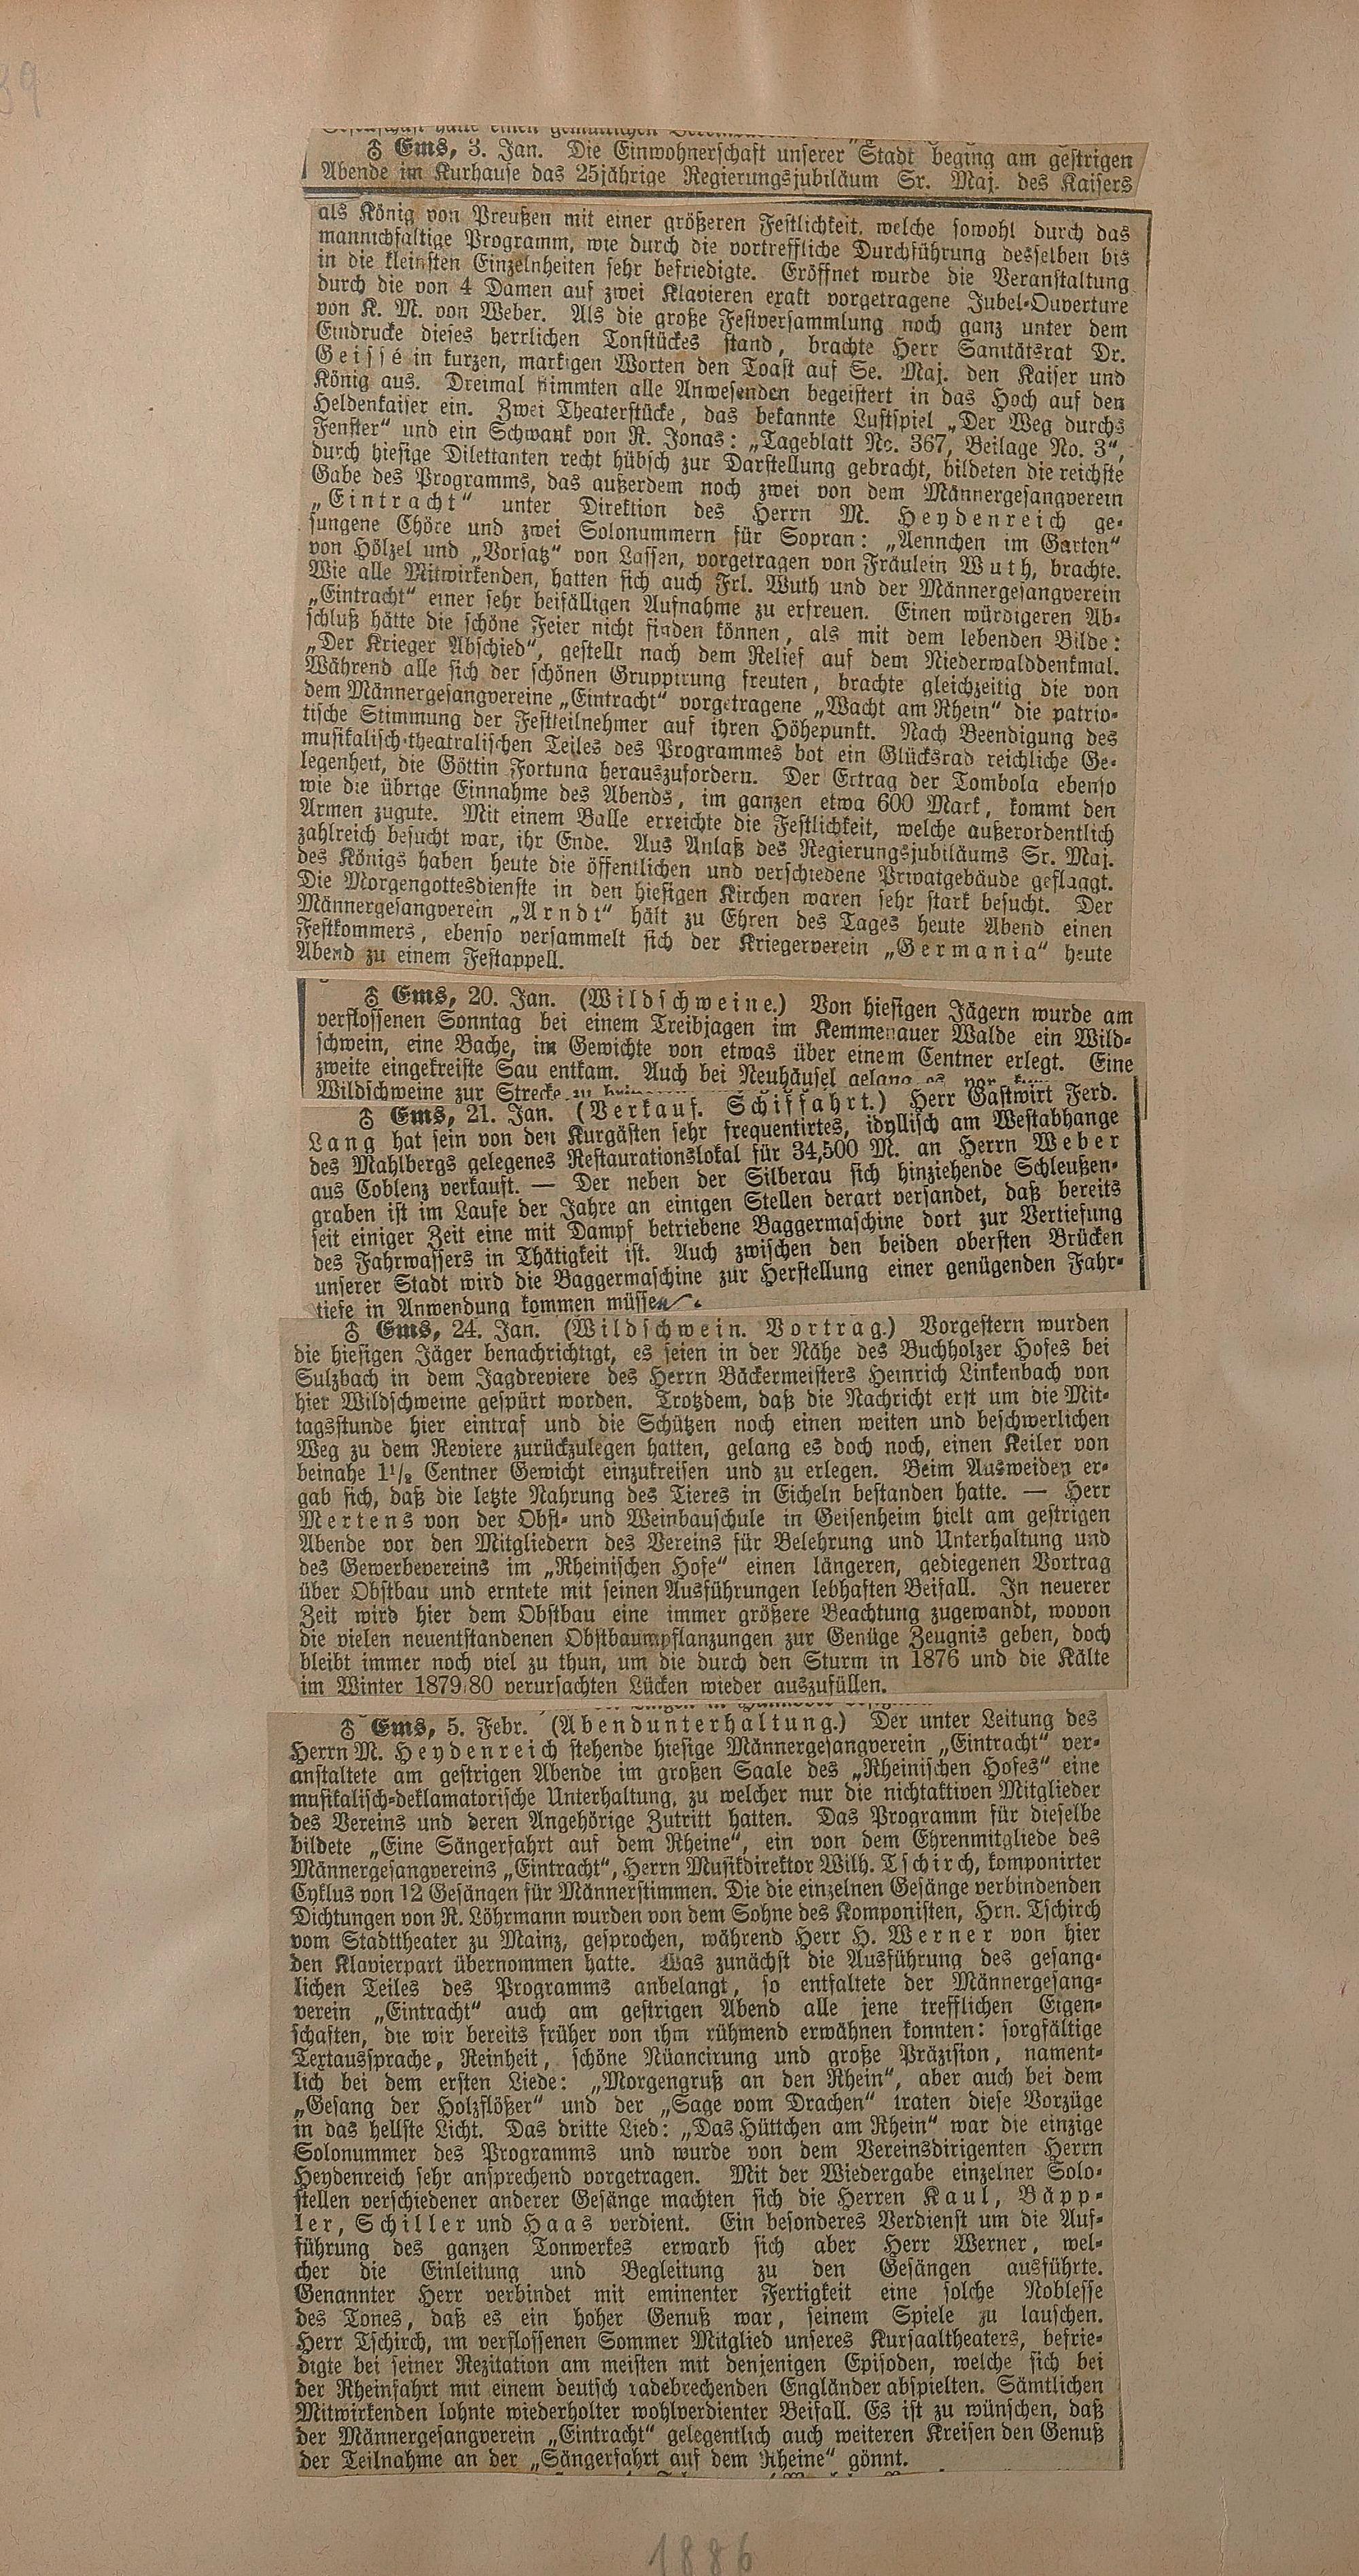 39
♁ Ems, 3. Jan. Die Einwohnerschaft unserer Stadt beging am gestrigen
Abende im Kurhause das 25jährige Regierungsjubiläum Sr. Maj. des Kaisers
als König von Preußen mit einer größeren Festlichkeit, welche sowohl durch das
mannichfaltige Programm, wie durch die vortreffliche Durchführung desselben bis
in die kleinsten Einzelnheiten sehr befriedigte. Eröffnet wurde die Veranstaltung
durch die von 4 Damen auf zwei Klavieren exakt vorgetragene Jubel-Ouverture
von K. M. von Weber. Als die große Festversammlung noch ganz unter dem
Eindrucke dieses herrlichen Tonstückes stand, brachte Herr Sanitätsrat Dr.
Geissé in kurzen, markigen Worten den Toast auf Se. Maj. den Kaiser und
König aus. Dreimal stimmten alle Anwesenden begeistert in das Hoch auf den
Heldenkaiser ein. Zwei Theaterstücke, das bekannte Lustspiel „Der Weg durchs
Fenster“ und ein Schwank von R. Jonas: „Tageblatt No. 367, Beilage No. 3“,
durch hiesige Dilettanten recht hübsch zur Darstellung gebracht, bildeten die reichste
Gabe des Programms, das außerdem noch zwei von dem Männergesangverein
„Eintracht“ unter Direktion des Herrn M. Heydenreich ge-
sungene Chöre und zwei Solonummern für Sopran: „Aennchen im Garten“
von Hölzel und „Vorsatz“ von Lassen, vorgetragen von Fräulein Wuth, brachte.
Wie alle Mitwirkenden, hatten sich auch Frl. Wuth und der Männergesangverein
„Eintracht“ einer sehr beifälligen Aufnahme zu erfreuen. Einen würdigeren Ab-
schluß hätte die schöne Feier nicht finden können, als mit dem lebenden Bilde:
„Der Krieger Abschied“, gestellt nach dem Relief auf dem Niederwalddenkmal.
Während alle sich der schönen Gruppirung freuten, brachte gleichzeitig die von
dem Männergesangvereine „Eintracht“ vorgetragene „Wacht am Rhein“ die patrio-
tische Stimmung der Festteilnehmer auf ihren Höhepunkt. Nach Beendigung des
musikalisch-theatralischen Teiles des Programmes bot ein Glücksrad reichliche Ge-
legenheit, die Göttin Fortuna herauszufordern. Der Ertrag der Tombola ebenso
wie die übrige Einnahme des Abends, im ganzen etwa 600 Mark, kommt den
Armen zugute. Mit einem Balle erreichte die Festlichkeit, welche außerordentlich
zahlreich besucht war, ihr Ende. Aus Anlaß des Regierungsjubiläums Sr. Maj.
des Königs haben heute die öffentlichen und verschiedene Privatgebäude geflaggt.
Die Morgengottesdienste in den hiesigen Kirchen waren sehr stark besucht. Der
Männergesangverein „Arndt“ hält zu Ehren des Tages heute Abend einen
Festkommers, ebenso versammelt sich der Kriegerverein „Germania“ heute
Abend zu einem Festappell.
♁ Ems, 20. Jan. (Wildschweine.) Von hiesigen Jägern wurde am
verflossenen Sonntag bei einem Treibjagen im Kemmenauer Walde ein Wild-
schwein, eine Bache, im Gewichte von etwas über einem Centner erlegt. Eine
zweite eingekreiste Sau entkam. Auch bei Neuhäusel gelang es,
Wildschweine zur Strecke zu
♁ Ems, 21. Jan. (Verkauf. Schiffahrt.) Herr Gastwirt Ferd.
Lang hat sein von den Kurgästen sehr frequentirtes, idyllisch am Westabhange
des Mahlbergs gelegenes Restaurationslokal für 34,500 M. an Herrn Weber
aus Coblenz verkauft. — Der neben der Silberau sich hinziehende Schleußen-
graben ist im Laufe der Jahre an einigen Stellen derart versandet, daß bereits
seit einiger Zeit eine mit Dampf betriebene Baggermaschine dort zur Vertiefung
des Fahrwassers in Thätigkeit ist. Auch zwischen den beiden obersten Brücken
unserer Stadt wird die Baggermaschine zur Herstellung einer genügenden Fahr-
tiefe in Anwendung kommen müssen.
♁ Ems, 24. Jan. (Wildschwein. Vortrag.) Vorgestern wurden
die hiesigen Jäger benachrichtigt, es seien in der Nähe des Buchholzer Hofes bei
Sulzbach in dem Jagdreviere des Herrn Bäckermeisters Heinrich Linkenbach von
hier Wildschweine gespürt worden. Trotzdem, daß die Nachricht erst um die Mit-
tagsstunde hier eintraf und die Schützen noch einen weiten und beschwerlichen
Weg zu dem Reviere zurückzulegen hatten, gelang es doch noch, einen Keiler von
beinahe 1½ Centner Gewicht einzukreisen und zu erlegen. Beim Ausweiden er-
gab sich, daß die letzte Nahrung des Tieres in Eicheln bestanden hatte. — Herr
Mertens von der Obst- und Weinbauschule in Geisenheim hielt am gestrigen
Abende vor den Mitgliedern des Vereins für Belehrung und Unterhaltung und
des Gewerbevereins im „Rheinischen Hofe“ einen längeren, gediegenen Vortrag
über Obstbau und erntete mit seinen Ausführungen lebhaften Beifall. In neuerer
Zeit wird hier dem Obstbau eine immer größere Beachtung zugewandt, wovon
die vielen neuentstandenen Obstbaumpflanzungen zur Genüge Zeugnis geben, doch
bleibt immer noch viel zu thun, um die durch den Sturm in 1876 und die Kälte
im Winter 1879/80 verursachten Lücken wieder auszufüllen.
♁ Ems, 5. Febr. (Abendunterhaltung.) Der unter Leitung des
Herrn M. Heydenreich stehende hiesige Männergesangverein „Eintracht“ ver-
anstaltete am gestrigen Abende im großen Saale des „Rheinischen Hofes“ eine
musikalisch-deklamatorische Unterhaltung, zu welcher nur die nichtaktiven Mitglieder
des Vereins und deren Angehörige Zutritt hatten. Das Programm für dieselbe
bildete „Eine Sängerfahrt auf dem Rheine“, ein von dem Ehrenmitgliede des
Männergesangvereins „Eintracht“, Herrn Musikdirektor Wilh. Tschirch, komponirter
Cyklus von 12 Gesängen für Männerstimmen. Die die einzelnen Gesänge verbindenden
Dichtungen von R. Löhrmann wurden von dem Sohne des Komponisten, Hrn. Tschirch
vom Stadttheater zu Mainz, gesprochen, während Herr H. Werner von hier
den Klavierpart übernommen hatte. Was zunächst die Ausführung des gesang-
lichen Teiles des Programms anbelangt, so entfaltete der Männergesang-
verein „Eintracht“ auch am gestrigen Abend alle jene trefflichen Eigen-
schaften, die wir bereits früher von ihm rühmend erwähnen konnten: sorgfältige
Textaussprache, Reinheit, schöne Nüancirung und große Präzision, nament-
lich bei dem ersten Liede: „Morgengruß an den Rhein“, aber auch bei dem
„Gesang der Holzflößer“ und der „Sage vom Drachen“ traten diese Vorzüge
in das hellste Licht. Das dritte Lied: „Das Hüttchen am Rhein“ war die einzige
Solonummer des Programms und wurde von dem Vereinsdirigenten Herrn
Heydenreich sehr ansprechend vorgetragen. Mit der Wiedergabe einzelner Solo-
stellen verschiedener anderer Gesänge machten sich die Herren Kaul, Bäpp-
ler, Schiller und Haas verdient. Ein besonderes Verdienst um die Auf-
führung des ganzen Tonwerkes erwarb sich aber Herr Werner, wel-
cher die Einleitung und Begleitung zu den Gesängen ausführte.
Genannter Herr verbindet mit eminenter Fertigkeit eine solche Noblesse
des Tones, daß es ein hoher Genuß war, seinem Spiele zu lauschen.
Herr Tschirch, im verflossenen Sommer Mitglied unseres Kursaaltheaters, befrie-
digte bei seiner Rezitation am meisten mit denjenigen Episoden, welche sich bei
der Rheinfahrt mit einem deutsch radebrechenden Engländer abspielten. Sämtlichen
Mitwirkenden lohnte wiederholter wohlverdienter Beifall. Es ist zu wünschen, daß
der Männergesangverein „Eintracht“ gelegentlich auch weiteren Kreisen den Genuß
der Teilnahme an der „Sängerfahrt auf dem Rheine“ gönnt.
1886